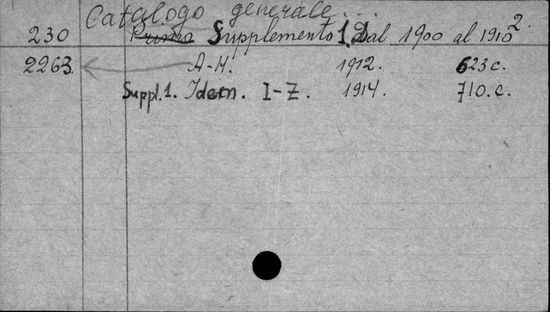 Catalogo generale.
230 Primo Supplemento 1. Dal 1900 al 1910 2.
2263. A-H. 1912. 623 c.
Suppl. 1. Idem. I-Z. 1914. 710. c.